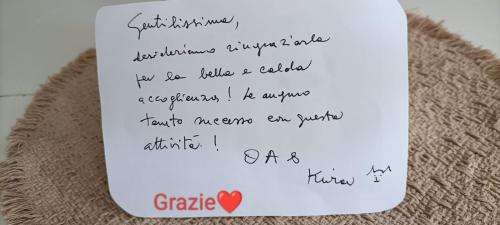 Gentilissima,
desideriamo ringraziarla
per la bella e calda
accoglienza! Le auguro
tanto successo con questa
attività!
O A S
Grazie❤️